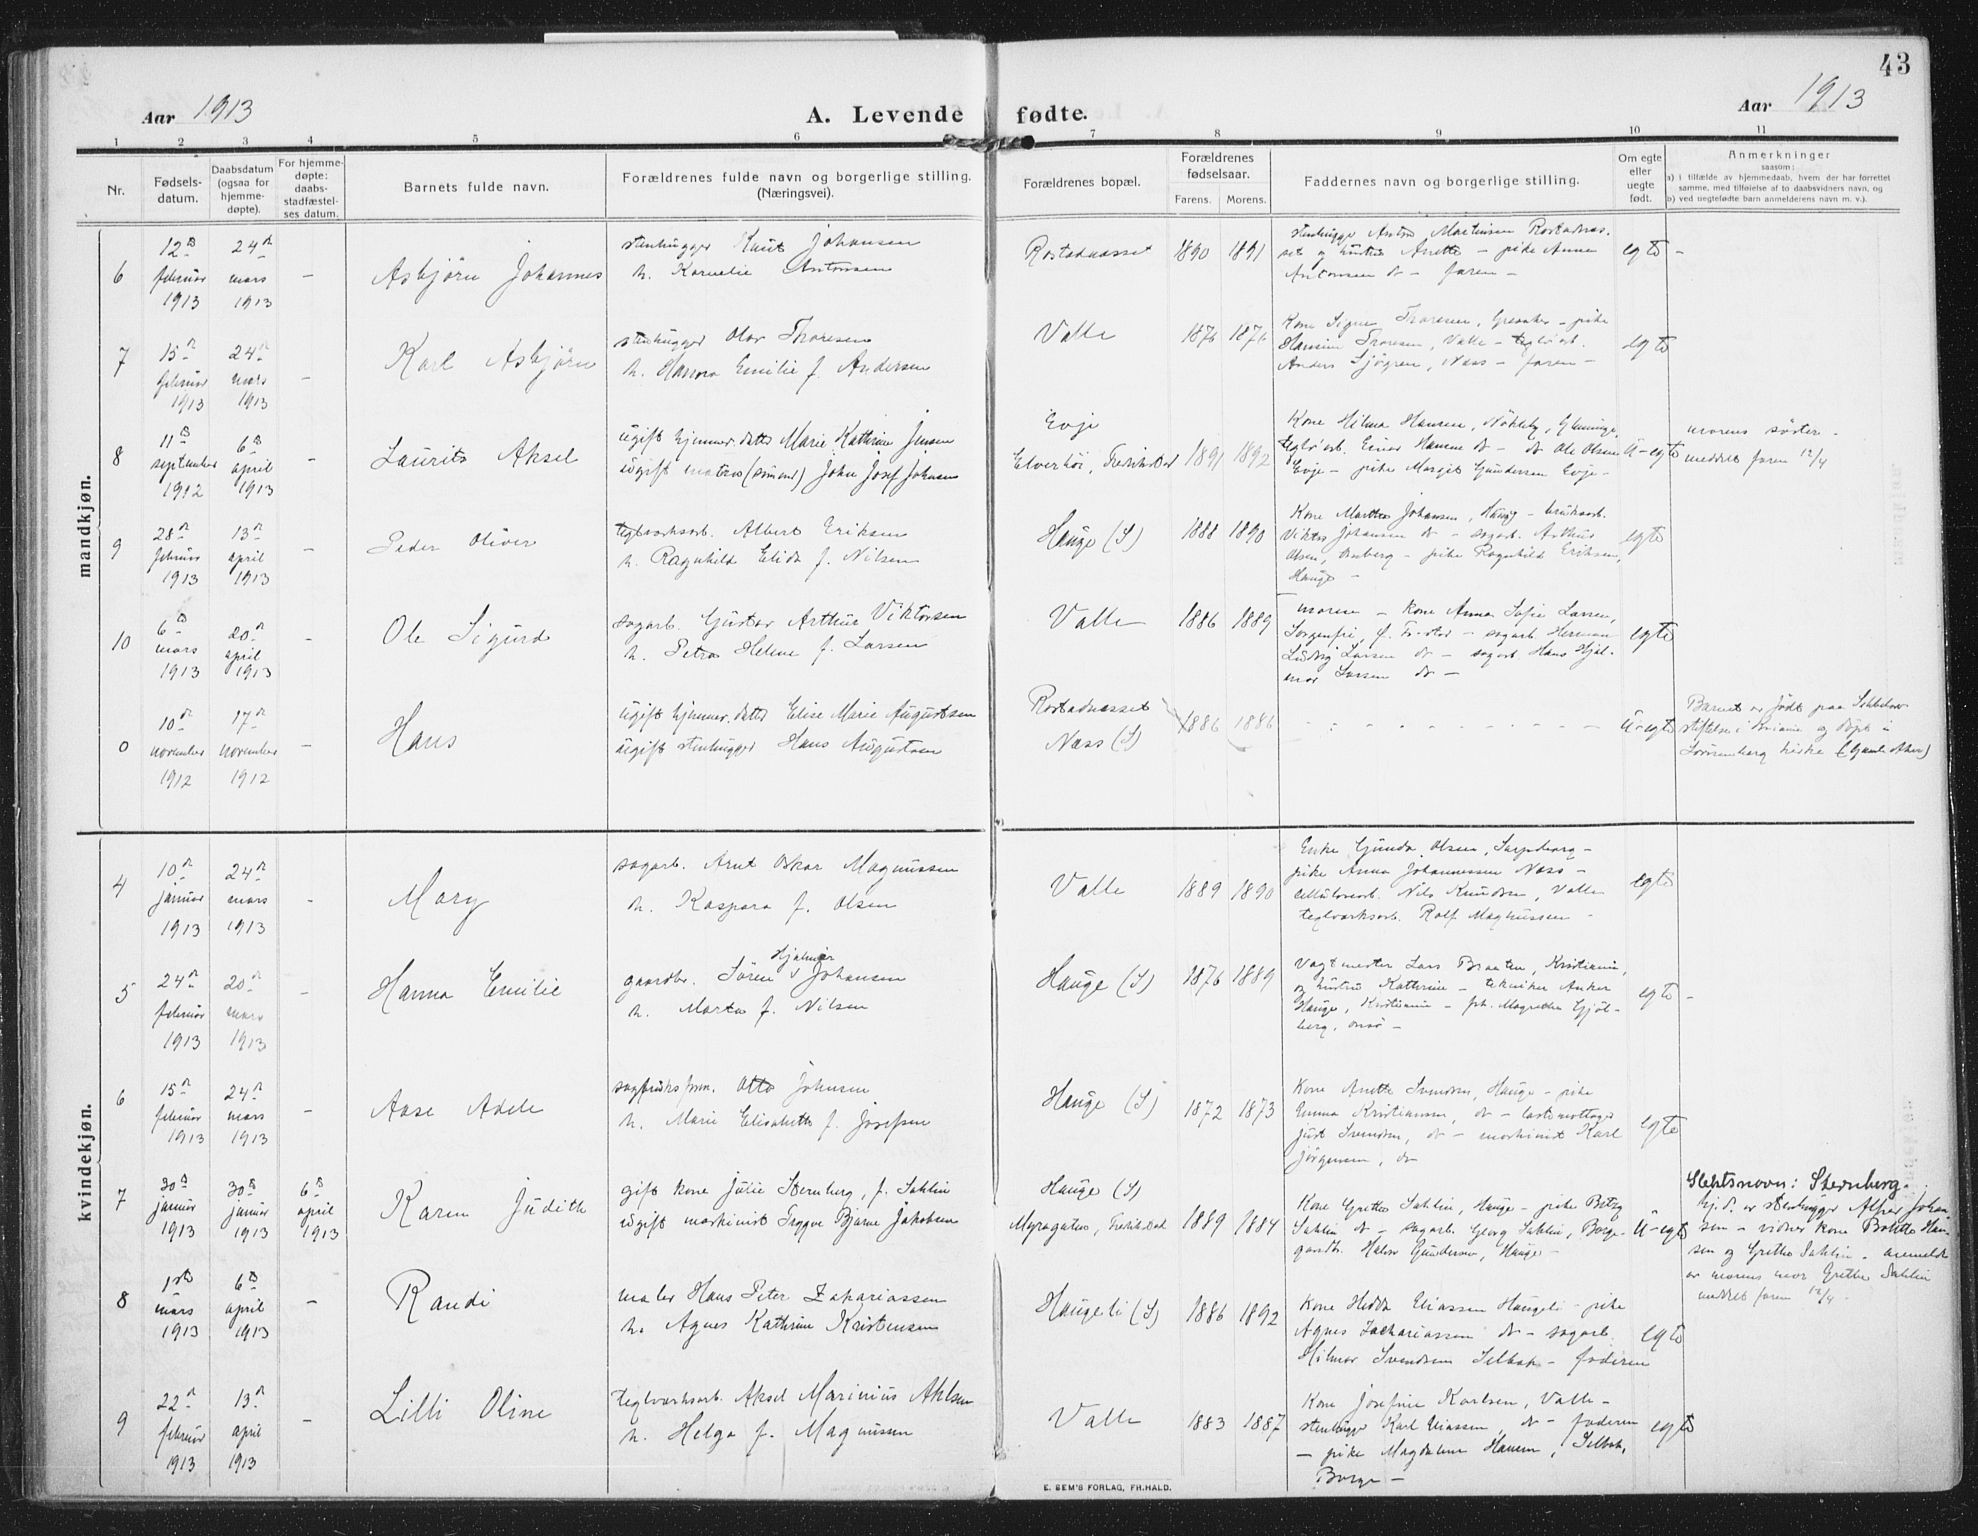 43
Aar 1913
A. Levende fødte.
Aar 1913
1 2 3 4 5 6 7 8 9 10 11
Nr.
Fødsels-
datum.
Daabsdatum
(ogsaa for
hjemme-
døpte).
For hjemme-
døpte:
daabs-
stadfæstel-
ses datum.
Barnets fulde navn.
Forældrenes fulde navn og borgerlige stilling.
(Næringsvei).
Forældrenes bopæl.
Forældrenes
fødselsaar.
Farens. Morens.
Faddernes navn og borgerlige stilling.
Om egte
eller
uegte
født.
Anmerkninger
saasom:
a) i tilfælde av hjemmedaab, hvem der har forrettet
samme, med tilføielse af to daabsvidners navn, og
b) ved uegtefødte barn anmelderens navn m. v.).
mandkjøn.
6
12
februar
1913
24
mars
1913
–
Asbjørn Johannes
stenhugger Knut Johansen
h. Kornelie Antonsen
Rostadnæsset
1890 1891
stenhugger Anton Martinsen Rostadnæs-
set og hustru Anette – pike Anna
Antonsen d – faren –
egte –
7
15
februar
1913
24
mars
1913
–
Karl Asbjørn
stenhugger Olav Thoresen
h. Hanna Emilie f. Andersen
Valle
1876 1876
Kone Signe Thoresen, Greaaker – pike
Hansine Thoresen, Valle – teglv. arb.
Anders Sjøgren, Næss – faren –
egte
8
11
september
1912
6
april
1913
–
Laurits Aksel
ugift hjemmev. datter Marie Kathrine Jensen
ugift matros (sømand) John Josef Johnsen
Evje
Elverhöi, Fredrikstad
1891 1892
Kone Hilma Hansen, Nökleby, Glemminge,
teglv. arb. Einar Hansen d – d Ole Olsen
Evje – pike Margit Gundersen Evje –
U-egte
morens søster –
meddelt faren 12/4
9
28
februar
1913
13
april
1913
–
Peder Oliver
teglverksarb. Albert Eriksen
h. Ragnhild Elida f. Nilsen
Hauge (S)
1888 1890
Kone Marthe Johansen, Hauge – bruksarb.
Viktor Johansen d – sagarb. Arthur
Olsen, – pike Ragnhild Eriksen,
Hauge –
egte
10
6
mars
1913
20
april
1913
–
Ole Sigurd
sagarb. Gustav Arthur Viktorsen
h. Petra Helene f. Larsen
Valle
1886 1889
moren – kone Anna Sofie Larsen,
Sorgenfri, p. Fr-stad – sagarb Herman
Ludvig Larsen d – sagarb. Hans Hjal-
mar Larsen d –
egte
0
10
november
1912
17
november
1912
–
Hans
ugift hjemmev. datter Elise Marie Augustsen
ugift stenhugger Hans Augustsen
Rostadnæsset
Næss (S)
1886 1886
U-egte
Barnet er født paa
stiftelse i Kr.iania og døpt i
kirke (Gamle Aker)
kvindekjøn.
4
10
januar
1913
24
mars
1913
–
Mary
sagarb. Arnt Oskar Magnussen
h. Kaspara f. Olsen
Valle
1889 1890
Enke Gunda Olsen, Sarpsborg –
pike Anna Johannessen Næss –
cellulosearb. Nils Knudsen, Valle
teglverksarb. Rolf Magnussen –
egte
5
24
februar
1913
20
mars
1913
–
Hanna Emilie
Hjalmar
gaardbr. Søren v Johansen
h. Marta f. Nilsen
Hauge (S)
1876 1889
Vagtmester Lars Braaten, Kristiania,
og hustru Kathrine – tekniker Anker
Hauge, Kristiania – frk. Magrethe Gjøl-
berg, Onsø –
egte –
6
15
februar
1913
24
mars
1913
–
Aase Adele
sagbruksform. Otto Johnsen
h. Marie Elisabeth f. Josefsen
Hauge (S)
1872 1873
Kone Anette Svendsen, Hauge – pike
Emma Kristiansen, d – lastemottager
Just Svendsen, d – maskinist Karl
Jørgensen, d
egte
7
30
januar
1913
30
januar
1913
6
april
1913
Karen Judith
gift kone Julie Sternberg, f. Sahlin
ugift maskinist Trygve Bjarne Jakobsen
Hauge (S)
Myragaten, Fredrikstad
1889 1884
Kone Grethe Sahlin, Hauge – pike Betzy
Sahlin d – sagarb Georg Sahlin, Borge –
gaardbr. Halvor Gundersen, Hauge –
U-egte
Slektsnavn: Sternberg.
hj. d. er stenhugger Alfred Johan-
sen – vidner kone Bolette Han-
sen og Grethe Sahlin – anmeldt
av morens mor Grethe Sahlin
meddelt faren 12/4 –
8
1ste
mars
1913
6
april
1913
–
Randi
maler Hans Peter Zakariassen
h. Agnes Kathrine Kristensen
Haugeli (S)
1886 1892
Kone Hedda Eliassen Haugeli – pike
Agnes Zachariassen d – sagarb.
Hilmar Svendsen Selbak – faderen
egte
9
22
februar
1913
13
april
1913
–
Lilli Oline
teglverksarb. Aksel Marinius Ahlsen
h. Helga f. Magnussen
Valle
1883 1887
Kone Josefine Karlsen, Valle –
stenhugger Karl Eliassen, d – faderen
– pike Magdalene Hansen, Selbak,
Borge –
egte
E. SEM'S FORLAG, FR.HALD.